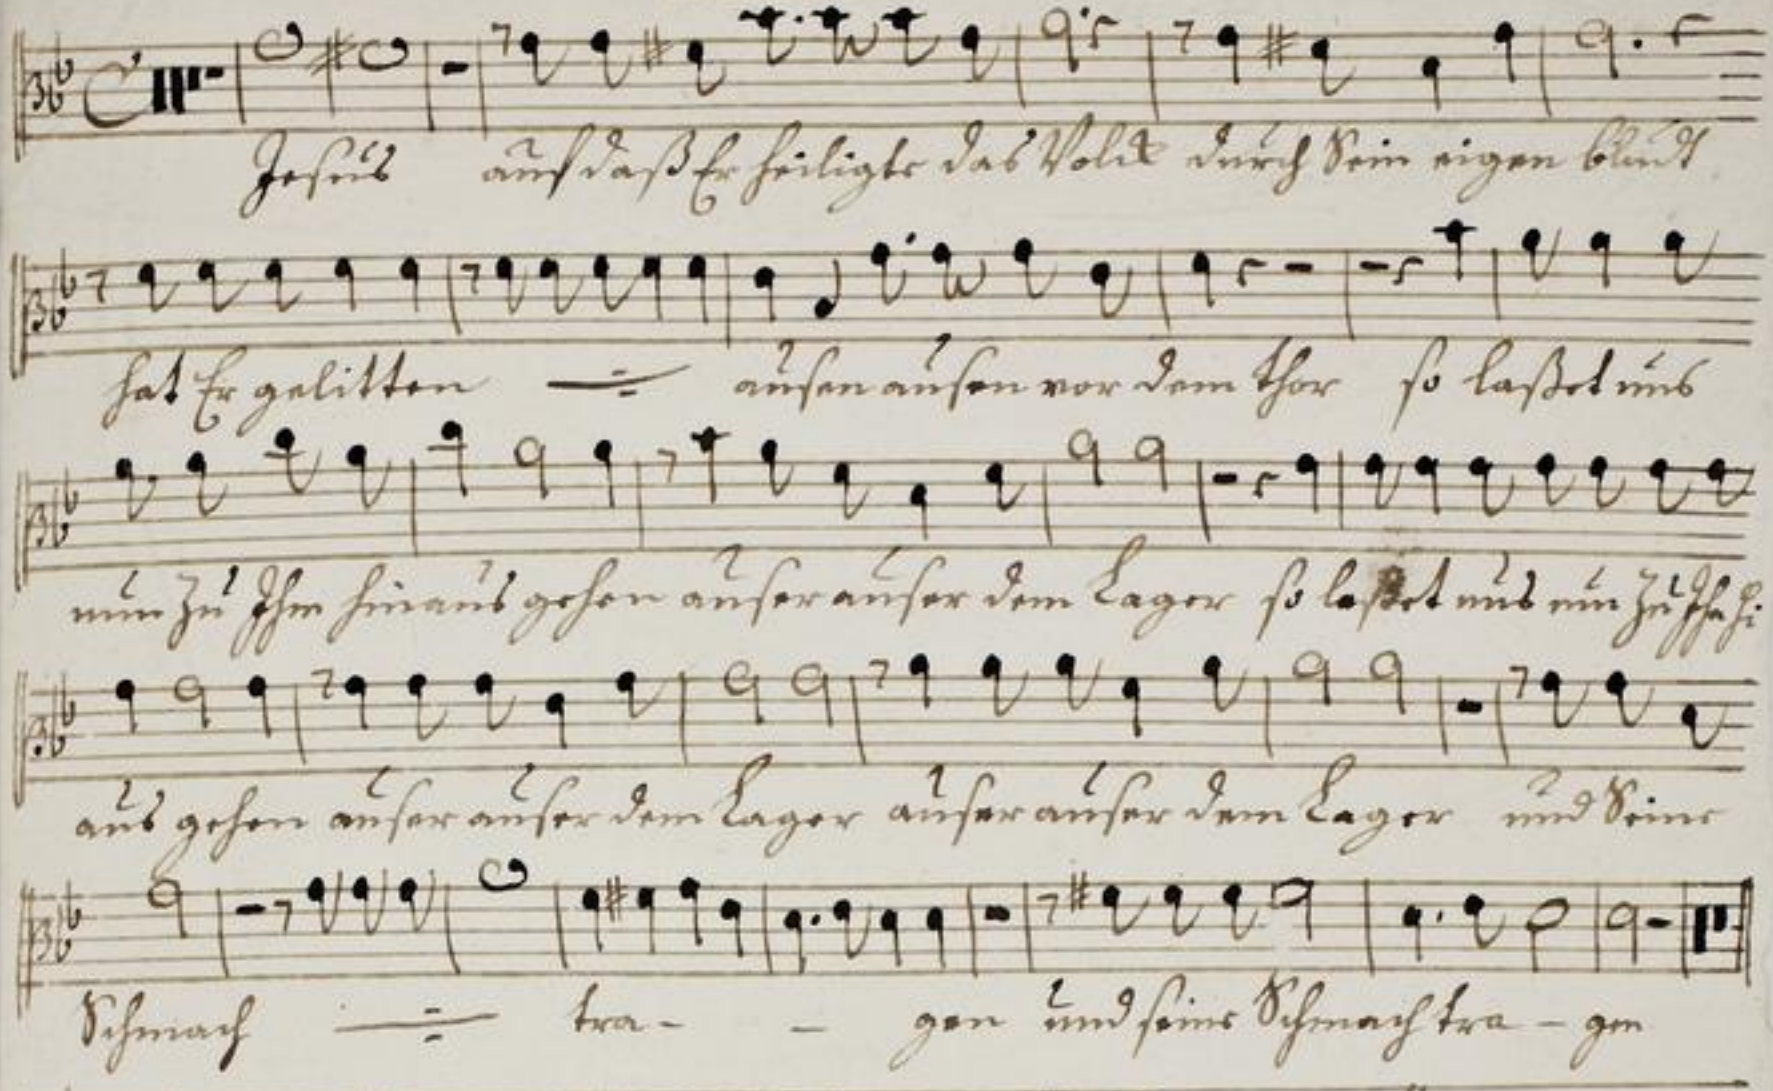 Jesus auf daß Er heiligte das Volck durch Sein eigen bludt
hat Er gelitten ausen ausen vor dem thor so laßet uns
nun zu Ihm hinaus gehen auser auser dem Lager so laßet uns nun zu Ihm hi
aus gehen auser auser dem Lager auser auser dem Lager und Seine
Schmach tra - - gen und seine Schmach tra - gen